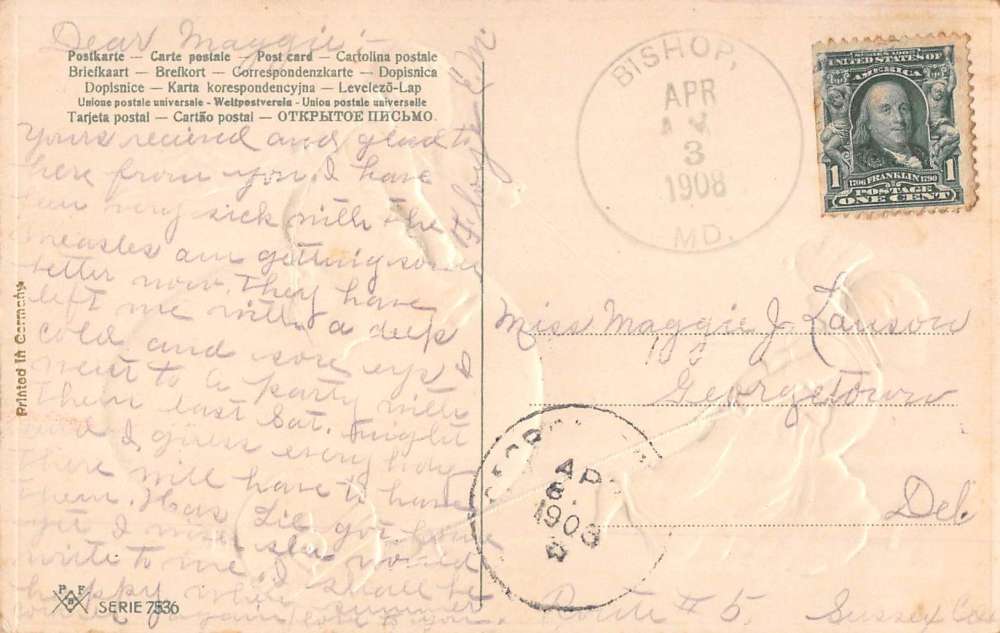 Dear Maggie:-
Postkarte — Carte postale — Post card — Cartolina postale
Briefkaart — Brefkort — Correspondenzkarte — Dopisnica
Dopisnice — Karta korespondencyjna — Levelező-Lap
Unione postale universale - Weltpostverein - Union postale universelle
Tarjeta postal — Cartão postal — ОТКРЫТОЕ ПИСЬМО.
Yours recieved and glad to
here from you. I have
been very sick with the
measles am getting some
better now. They have
left me with a deep
cold and sore eys &
went to a party with
them last Sat. night
and I guess every body
there will have to have
them. Has Lie got home
yet I wish she would
write to me
happy when shall be
summer
again love to you.
Printed in Germany
P F B
SERIE 7536
BISHOP,
APR
3
1908
MD.
UNITED STATES OF
AMERICA
1 1
1706 FRANKLIN 1790
POSTAGE
ONE CENT
Miss Maggie J. Lawson
Georgetown
Del.
Route # 5. Sussex Co
AP
6.
1908